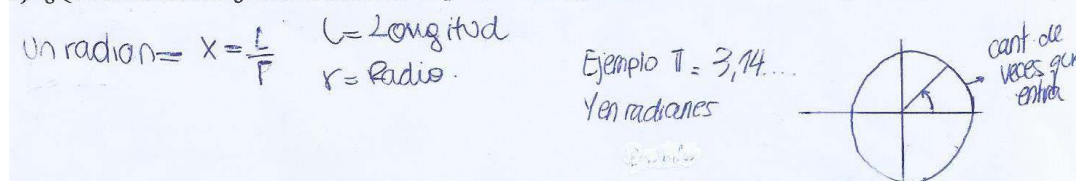 Un radian = X = L/r
L = Longitud
r = Radio.
Ejemplo π = 3,14....
Y en radianes
cant. de
veces que
entra